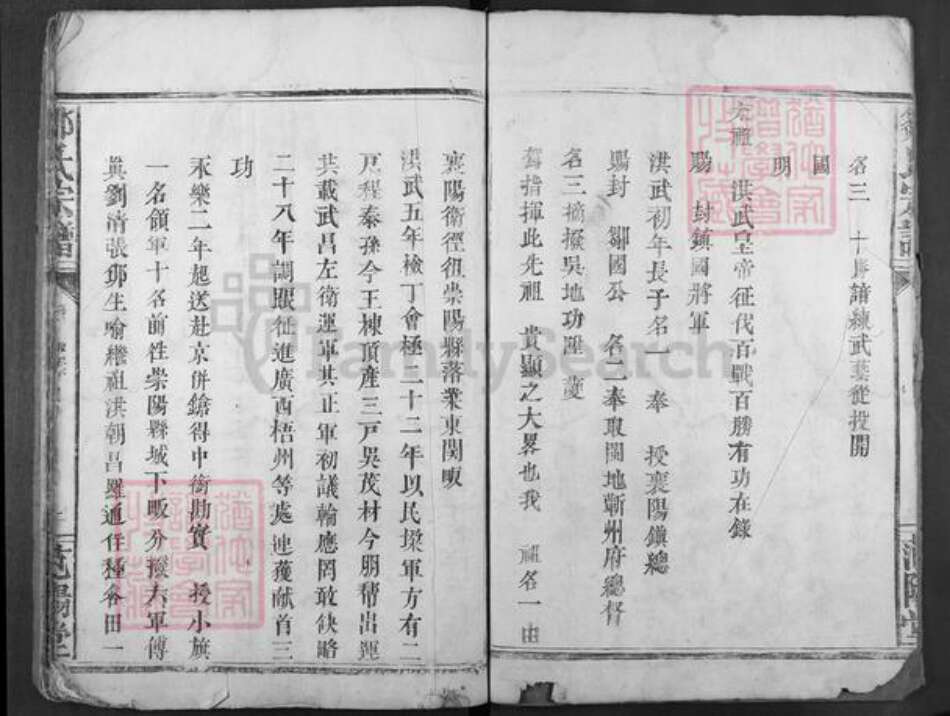 名三 十房諳練武藝從投開
國
明
太祖 洪武皇帝征代百戰百勝有功在錄
賜 封鎮國將軍
洪武初年長子名一 奉 授襄陽鎮總
賜封 鄒國公 名二奉取閩地蘄州府總督
名三摘撥吳地功陞
指揮此先祖 貴顯之大畧也我 祖名一由
襄陽衛徑徂崇陽縣落業東関畈
洪武五年檢丁會極二十二年以民壊軍方有二
兄程秦孫今王棟頂產三戸吳茂材今朋帮出運
共載武昌左衛運軍共正軍初議輪應罔敢缺略
二十八年調跟征進廣西梧州等處連獲献首三
功
永樂二年起送赴京併鎗得中衛勘實 授小旗
一名領軍十名前徃崇陽縣城下畈分撥六軍傅
眞劉清張鄧生喻繼祖洪朝呂羅通任種各田一
鄒氏宗譜
范陽堂
FamilySearch
猶他家譜學會收藏
猶他家譜學會收藏